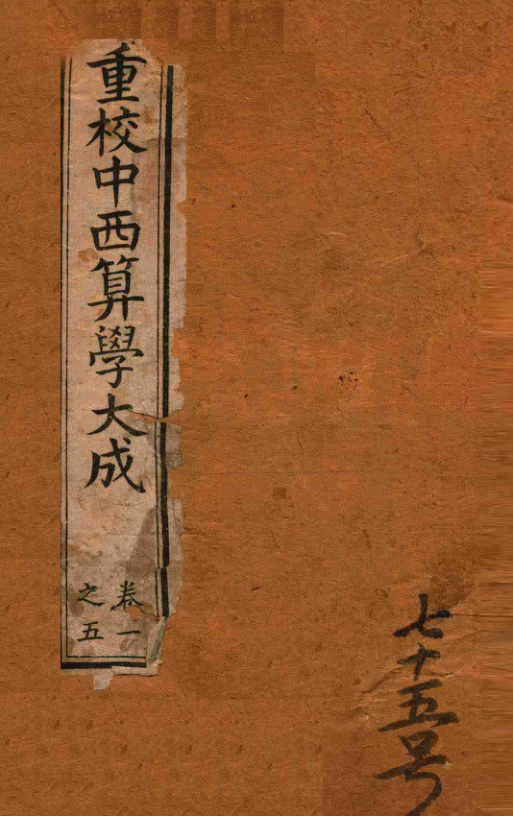 七十五号
重校中西算學大成
卷一
之五